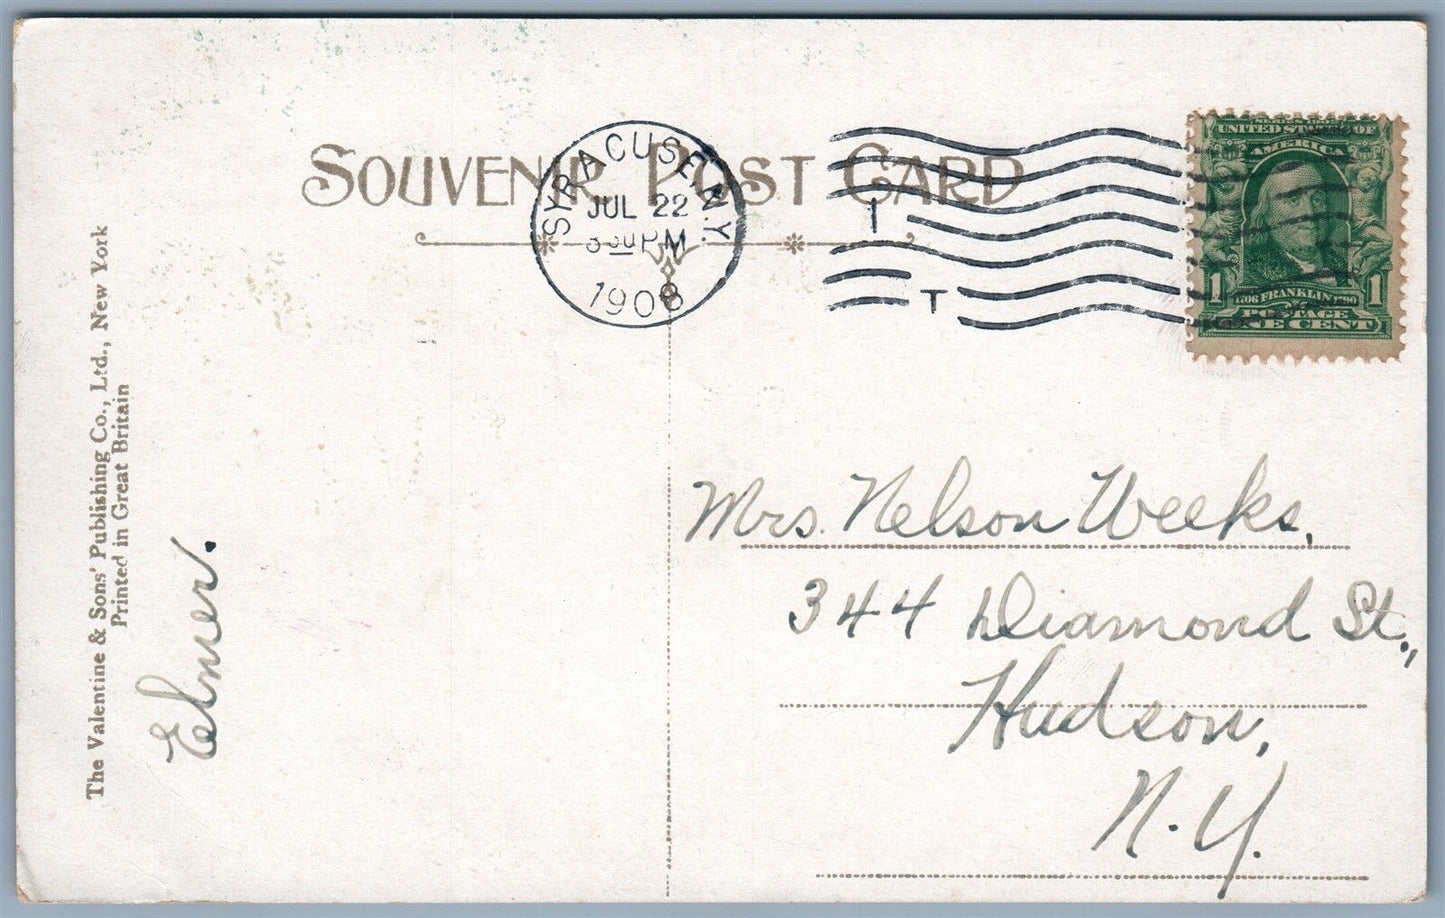 SOUVENIR POST CARD
SYRACUSE, N.Y.
JUL 22
3 30 PM
1908
1
T
UNITED STATES OF
AMERICA
1 FRANKLIN 1790 1
POSTAGE
ONE CENT
The Valentine & Sons' Publishing Co., Ltd., New York
Printed in Great Britain
Elmer.
Mrs. Nelson Weeks,
344 Diamond St.,
Hudson,
N.Y.